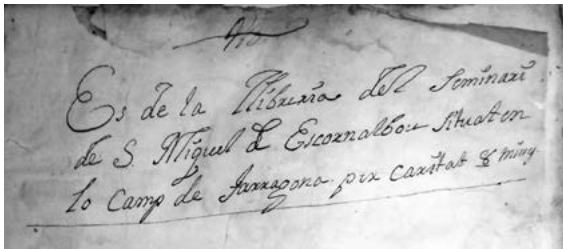 Es de la Llibreria del Seminari
de S. Miguel de Escornalbou situat en
lo Camp de Tarragona per Caritat &